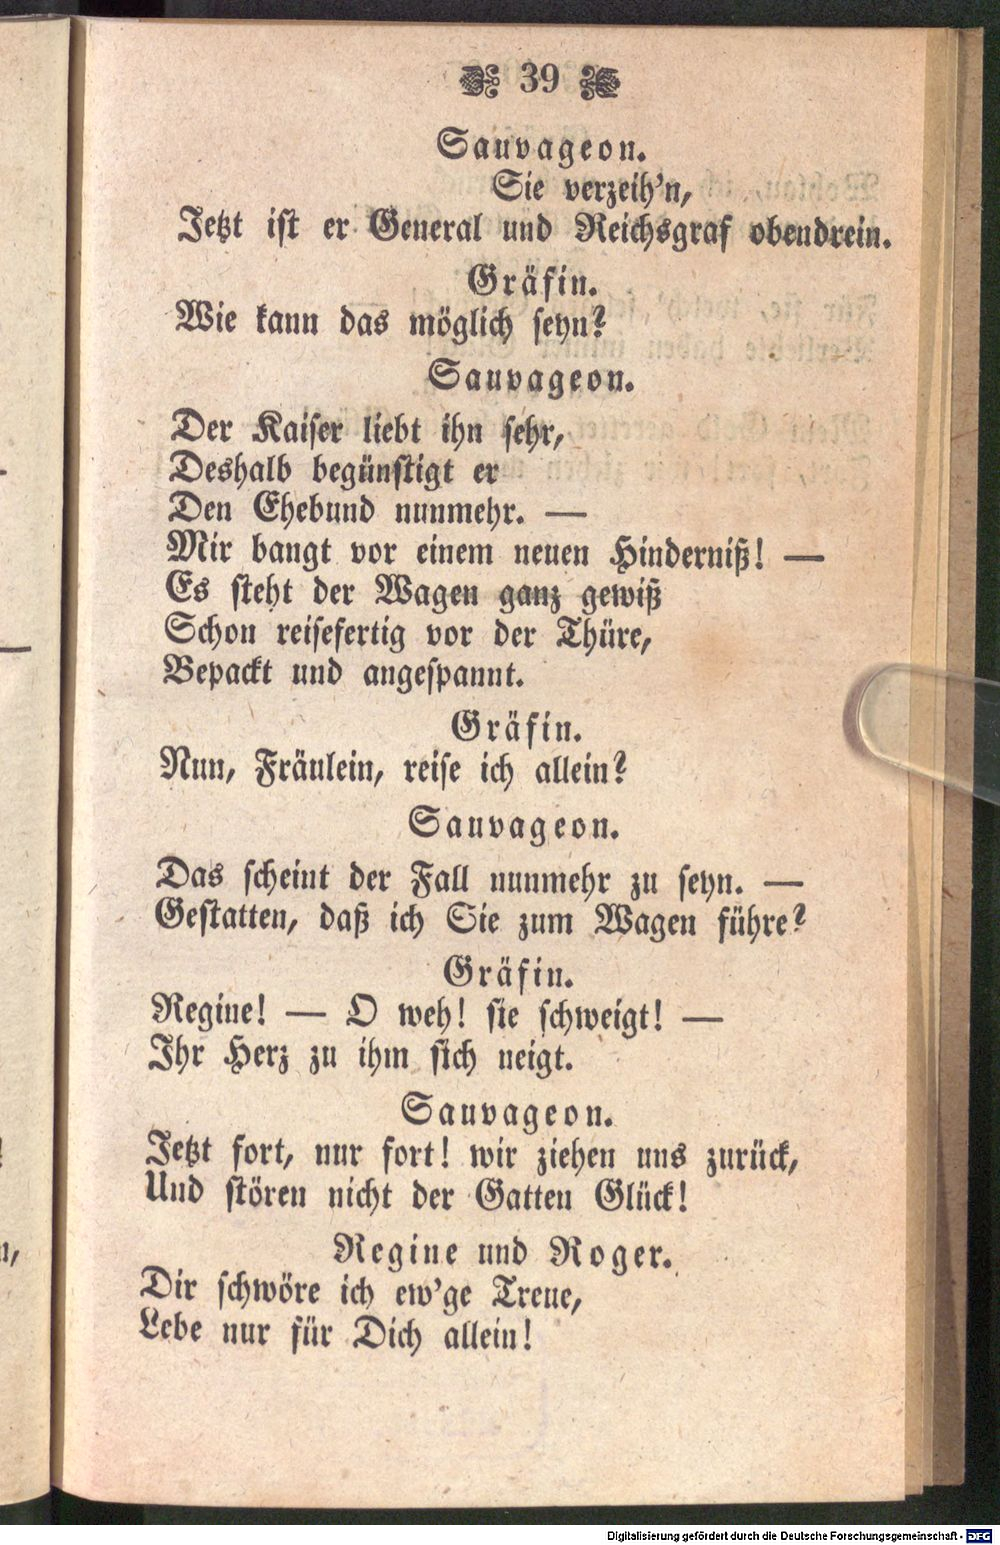 39
Sauvageon.
Sie verzeih'n,
Jetzt ist er General und Reichsgraf obendrein.
Gräfin.
Wie kann das möglich seyn?
Sauvageon.
Der Kaiser liebt ihn sehr,
Deshalb begünstigt er
Den Ehebund nunmehr. —
Mir bangt vor einem neuen Hinderniß! —
Es steht der Wagen ganz gewiß
Schon reisefertig vor der Thüre,
Bepackt und angespannt.
Gräfin.
Nun, Fräulein, reise ich allein?
Sauvageon.
Das scheint der Fall nunmehr zu seyn. —
Gestatten, daß ich Sie zum Wagen führe?
Gräfin.
Regine! — O weh! sie schweigt! —
Ihr Herz zu ihm sich neigt.
Sauvageon.
Jetzt fort, nur fort! wir ziehen uns zurück,
Und stören nicht der Gatten Glück!
Regine und Roger.
Dir schwöre ich ew'ge Treue,
Lebe nur für Dich allein!
Digitalisierung gefördert durch die Deutsche Forschungsgemeinschaft - DFG